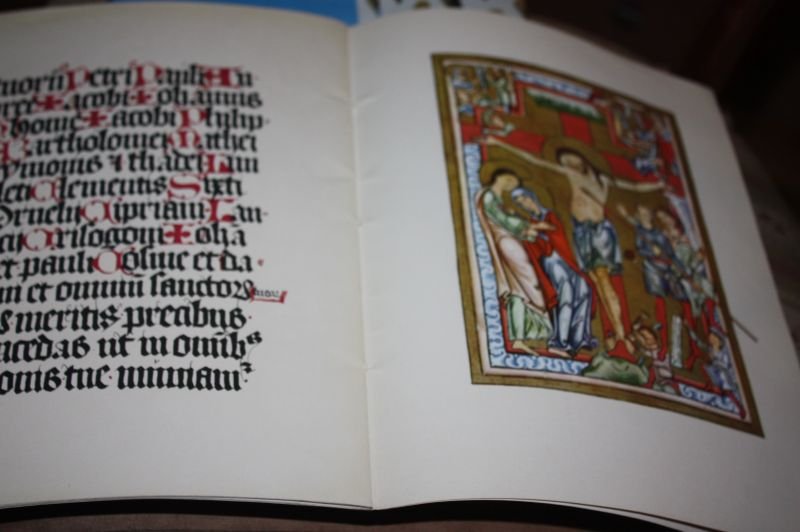 tuorū Petri Pauli An
dree Iacobi Iohannis
Thome Iacobi Philip
Bartholomei Mathei
ymonis ⁊ thadei Lini
leti Clementis Sixti
ornelii Cipriani Lau
cii Crisogoni Iohā
et pauli Cosme et da
ni et omniū sanctoꝝ tuoꝝ
meritis precibus
ncedas ut in omībꝰ
onis tue muniam